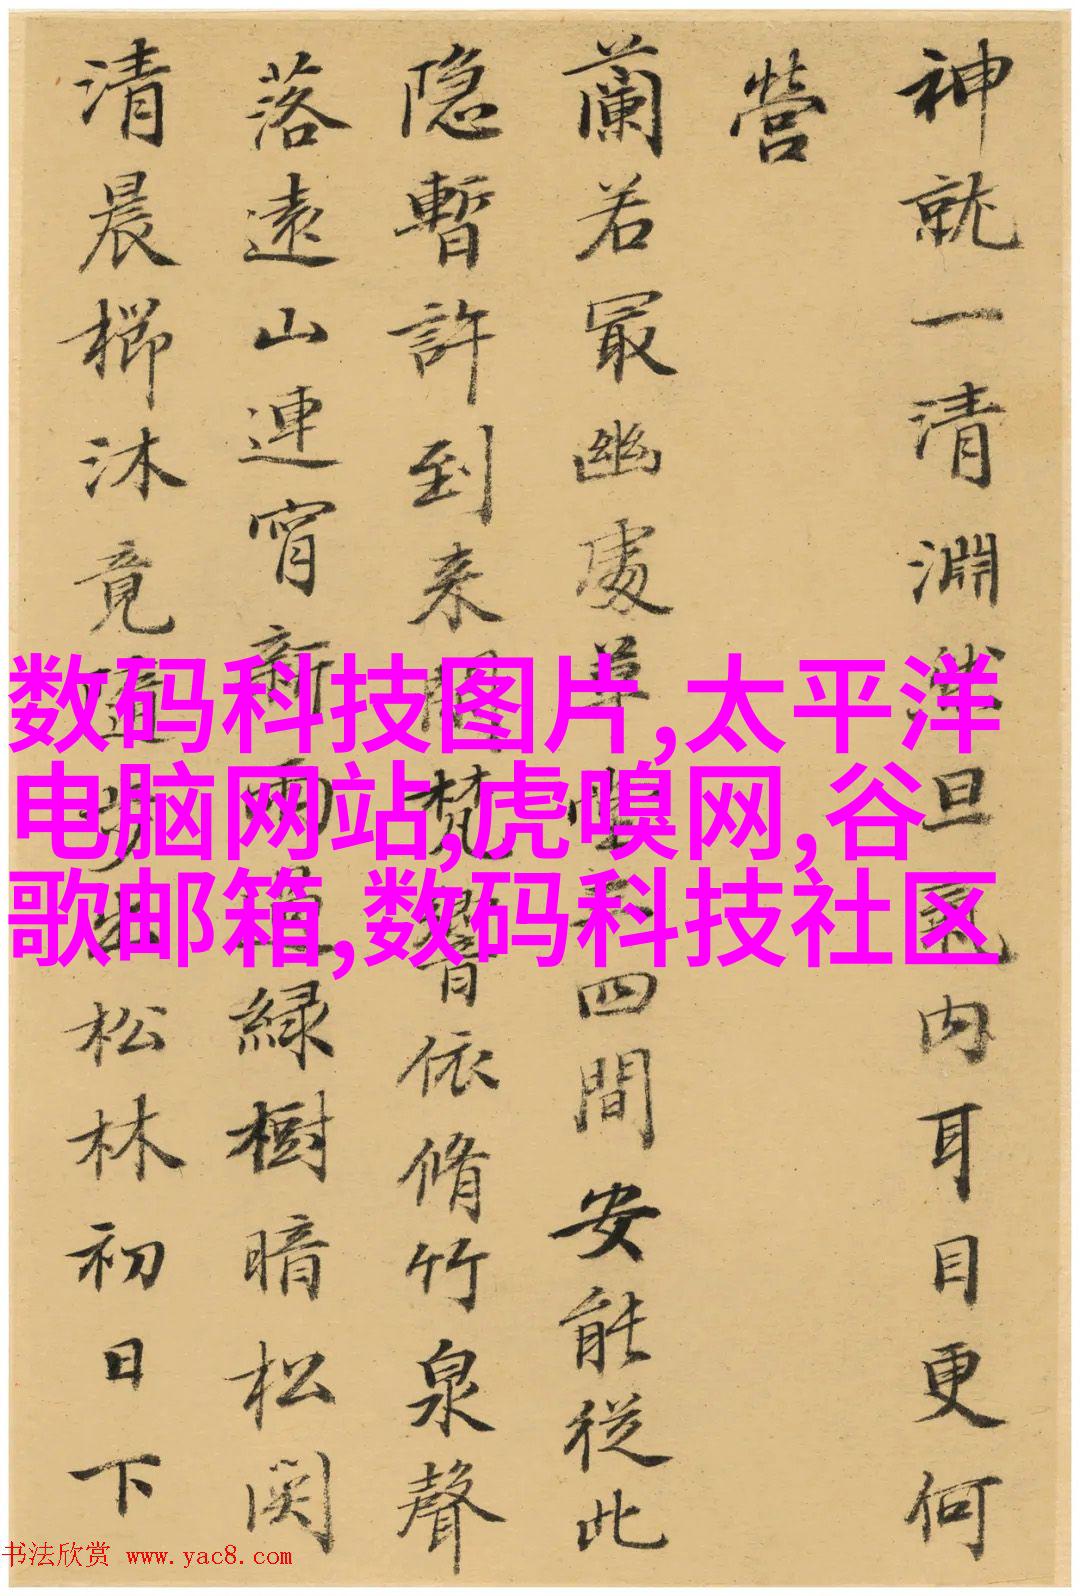 神就一清淵旦氣内耳目更何
營
蘭若冣幽處草四間安能從此
隐暫許到来梵響依脩竹泉聲
落遠山連宵新雨緑樹暗松関
清晨櫛沐竟步出松林初日下
数码科技图片,太平洋
电脑网站,虎嗅网,谷
歌邮箱,数码科技社区
书法欣赏 www.yac8.com